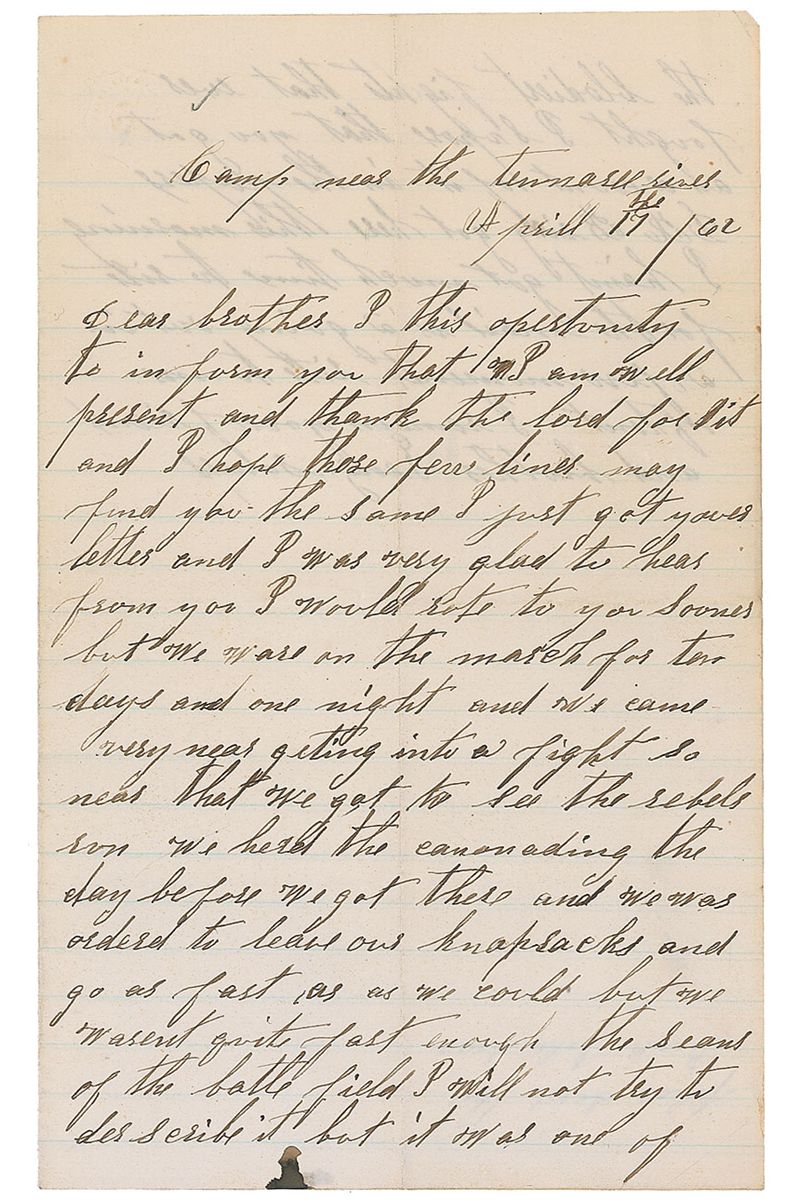 Camp near the tennasee river
Aprill 17 the / 62
Dear brother I this opertunity
to inform you that I am well
present and thank the lord for it
and I hope those few lines may
find you the same I just got yours
letter and I was very glad to hear
from you I would rote to you sooner
but we ware on the march for ten
days and one night and we came
very near geting into a fight so
near that we got to see the rebels
ron we herd the canonading the
day before we got there and we was
orderd to leave our knapsacks and
go as fast as as we could but we
wasent quite fast enough the seans
of the batle field I will not try to
describe it but it was one of